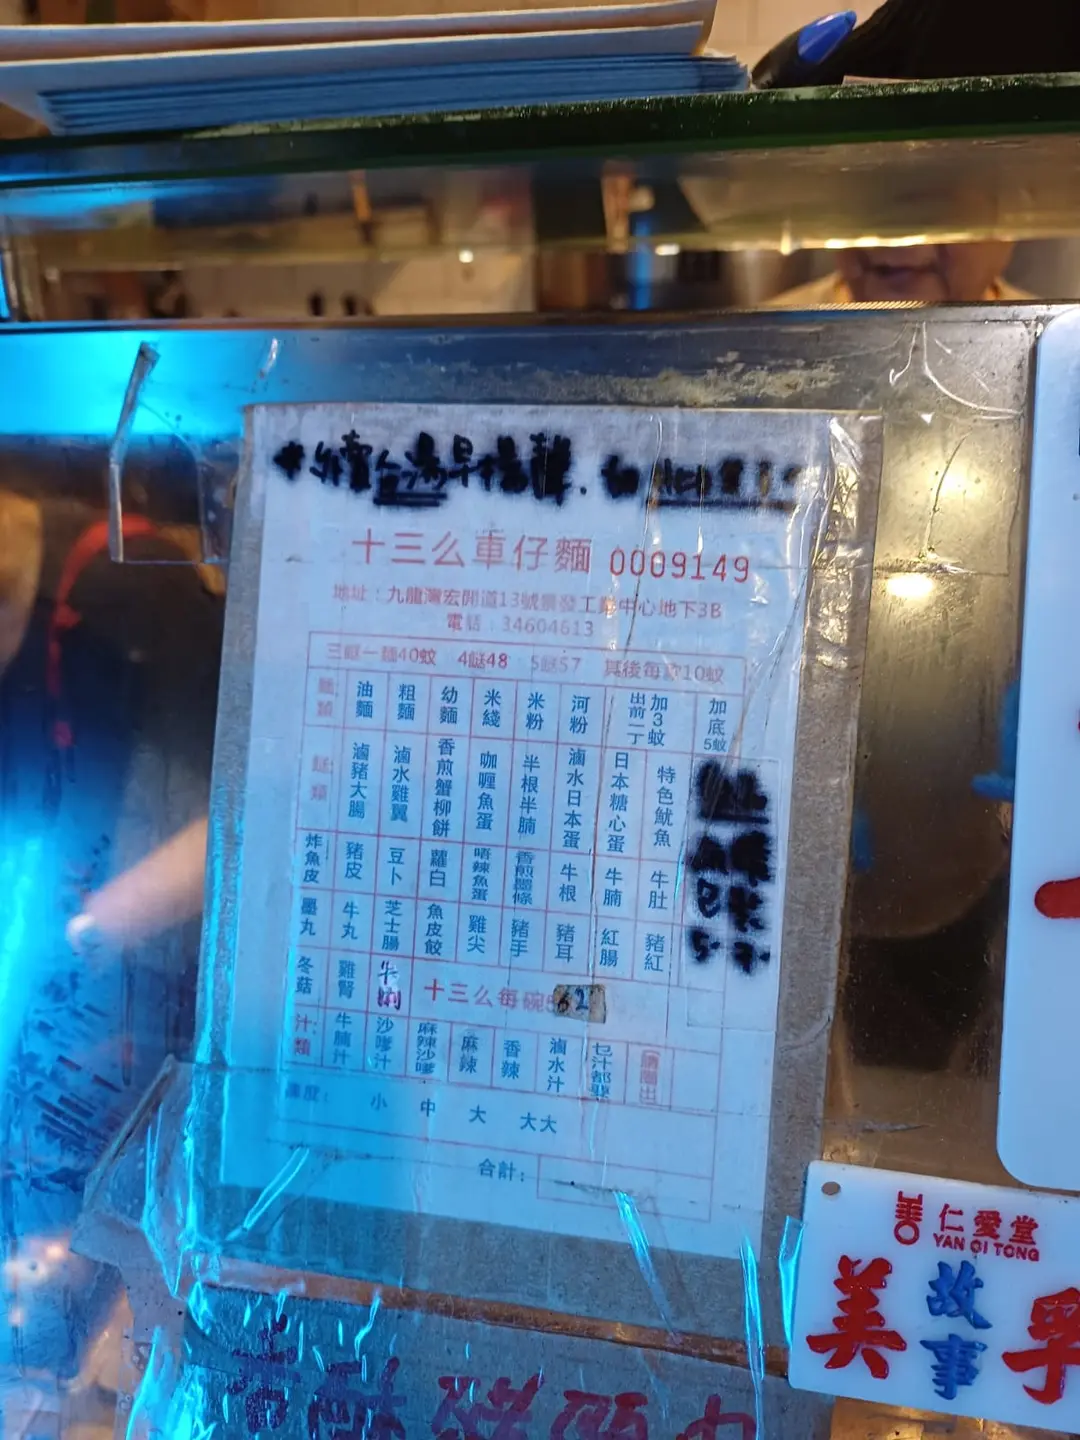 十三么車仔麵 0009149
地址：九龍灣宏開道13號景發工業中心地下3B
電話：34604613
三餸一麵40蚊 4餸48 5餸57 其後每款10蚊
麵類 油麵 粗麵 幼麵 米綫 米粉 河粉 出前一丁加3蚊 加底5蚊
餸類 滷豬大腸 滷水雞翼 香煎蟹柳餅 咖喱魚蛋 半根半腩 滷水日本蛋 日本糖心蛋 特色魷魚
炸魚皮 豬皮 豆卜 蘿白 唔辣魚蛋 香煎墨條 牛根 牛腩 牛肚
墨丸 牛丸 芝士腸 魚皮餃 雞尖 豬手 豬耳 紅腸 豬紅
冬菇 雞腎 十三么每碗 62
汁類： 牛腩汁 沙嗲汁 麻辣沙嗲 麻辣 香辣 滷水汁 乜汁都要
小 中 大 大大
合計：
仁愛堂
YAN OI TONG
美 故事